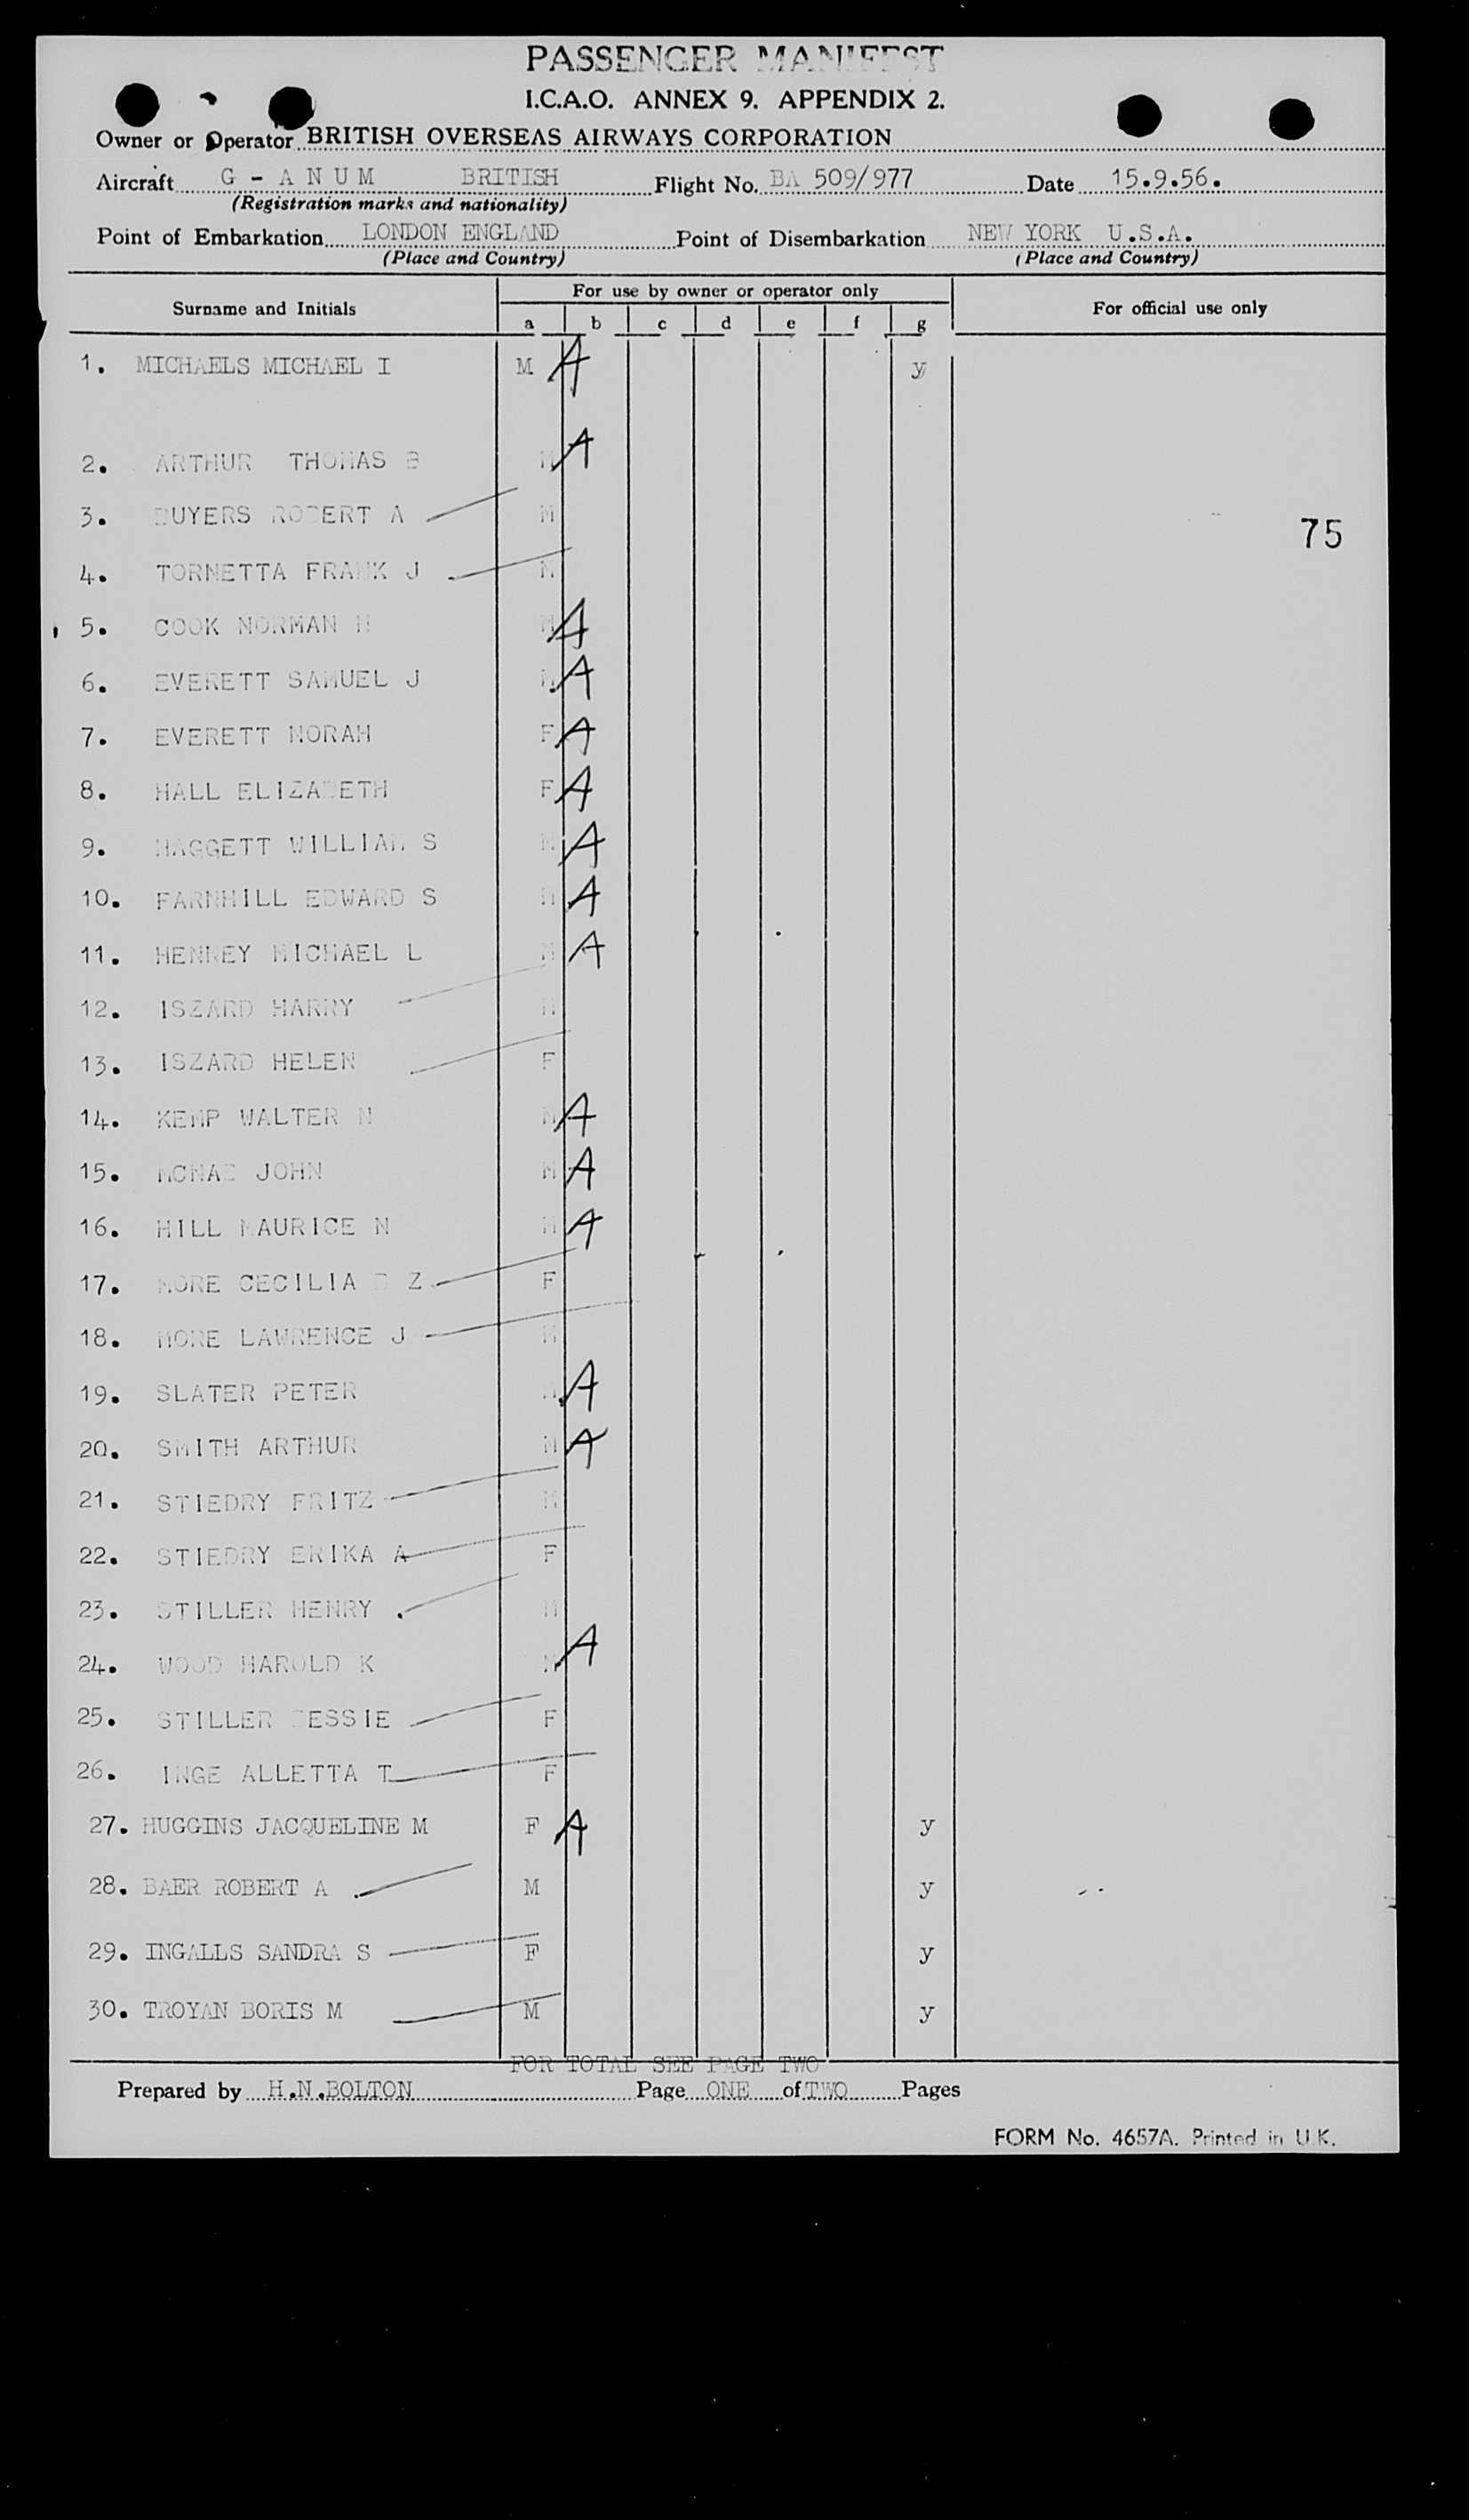 PASSENGER MANIFEST
I.C.A.O. ANNEX 9. APPENDIX 2.
Owner or Operator BRITISH OVERSEAS AIRWAYS CORPORATION
Aircraft G - A N U M BRITISH Flight No. BA 509/977 Date 15.9.56.
(Registration marks and nationality)
Point of Embarkation LONDON ENGLAND Point of Disembarkation NEW YORK U.S.A.
(Place and Country) (Place and Country)
Surname and Initials For use by owner or operator only For official use only
a b c d e f g
1. MICHAELS MICHAEL I M A y
2. ARTHUR THOMAS B M A
3. BUYERS ROBERT A M
75
4. TORNETTA FRANK J M
5. COOK NORMAN H M A
6. EVERETT SAMUEL J M A
7. EVERETT NORAH F A
8. HALL ELIZABETH F A
9. HAGGETT WILLIAM S M A
10. FARNHILL EDWARD S M A
11. HENNEY MICHAEL L M A
12. ISZARD HARRY M
13. ISZARD HELEN F
14. KEMP WALTER N M A
15. JOHN M A
16. HILL MAURICE N M A
17. MORE CECILIA Z F
18. MORE LAWRENCE J M
19. SLATER PETER M A
20. SMITH ARTHUR M A
21. STIEDRY FRITZ M
22. STIEDRY ERIKA A F
23. STILLER HENRY M
24. WOOD HAROLD K M A
25. STILLER F
26. INGE ALLETTA T F
27. HUGGINS JACQUELINE M F A y
28. BAER ROBERT A M y
29. INGALLS SANDRA S F y
30. TROYAN BORIS M M y
FOR TOTAL SEE PAGE TWO
Prepared by H.N.BOLTON Page ONE of TWO Pages
FORM No. 4657A. Printed in U.K.